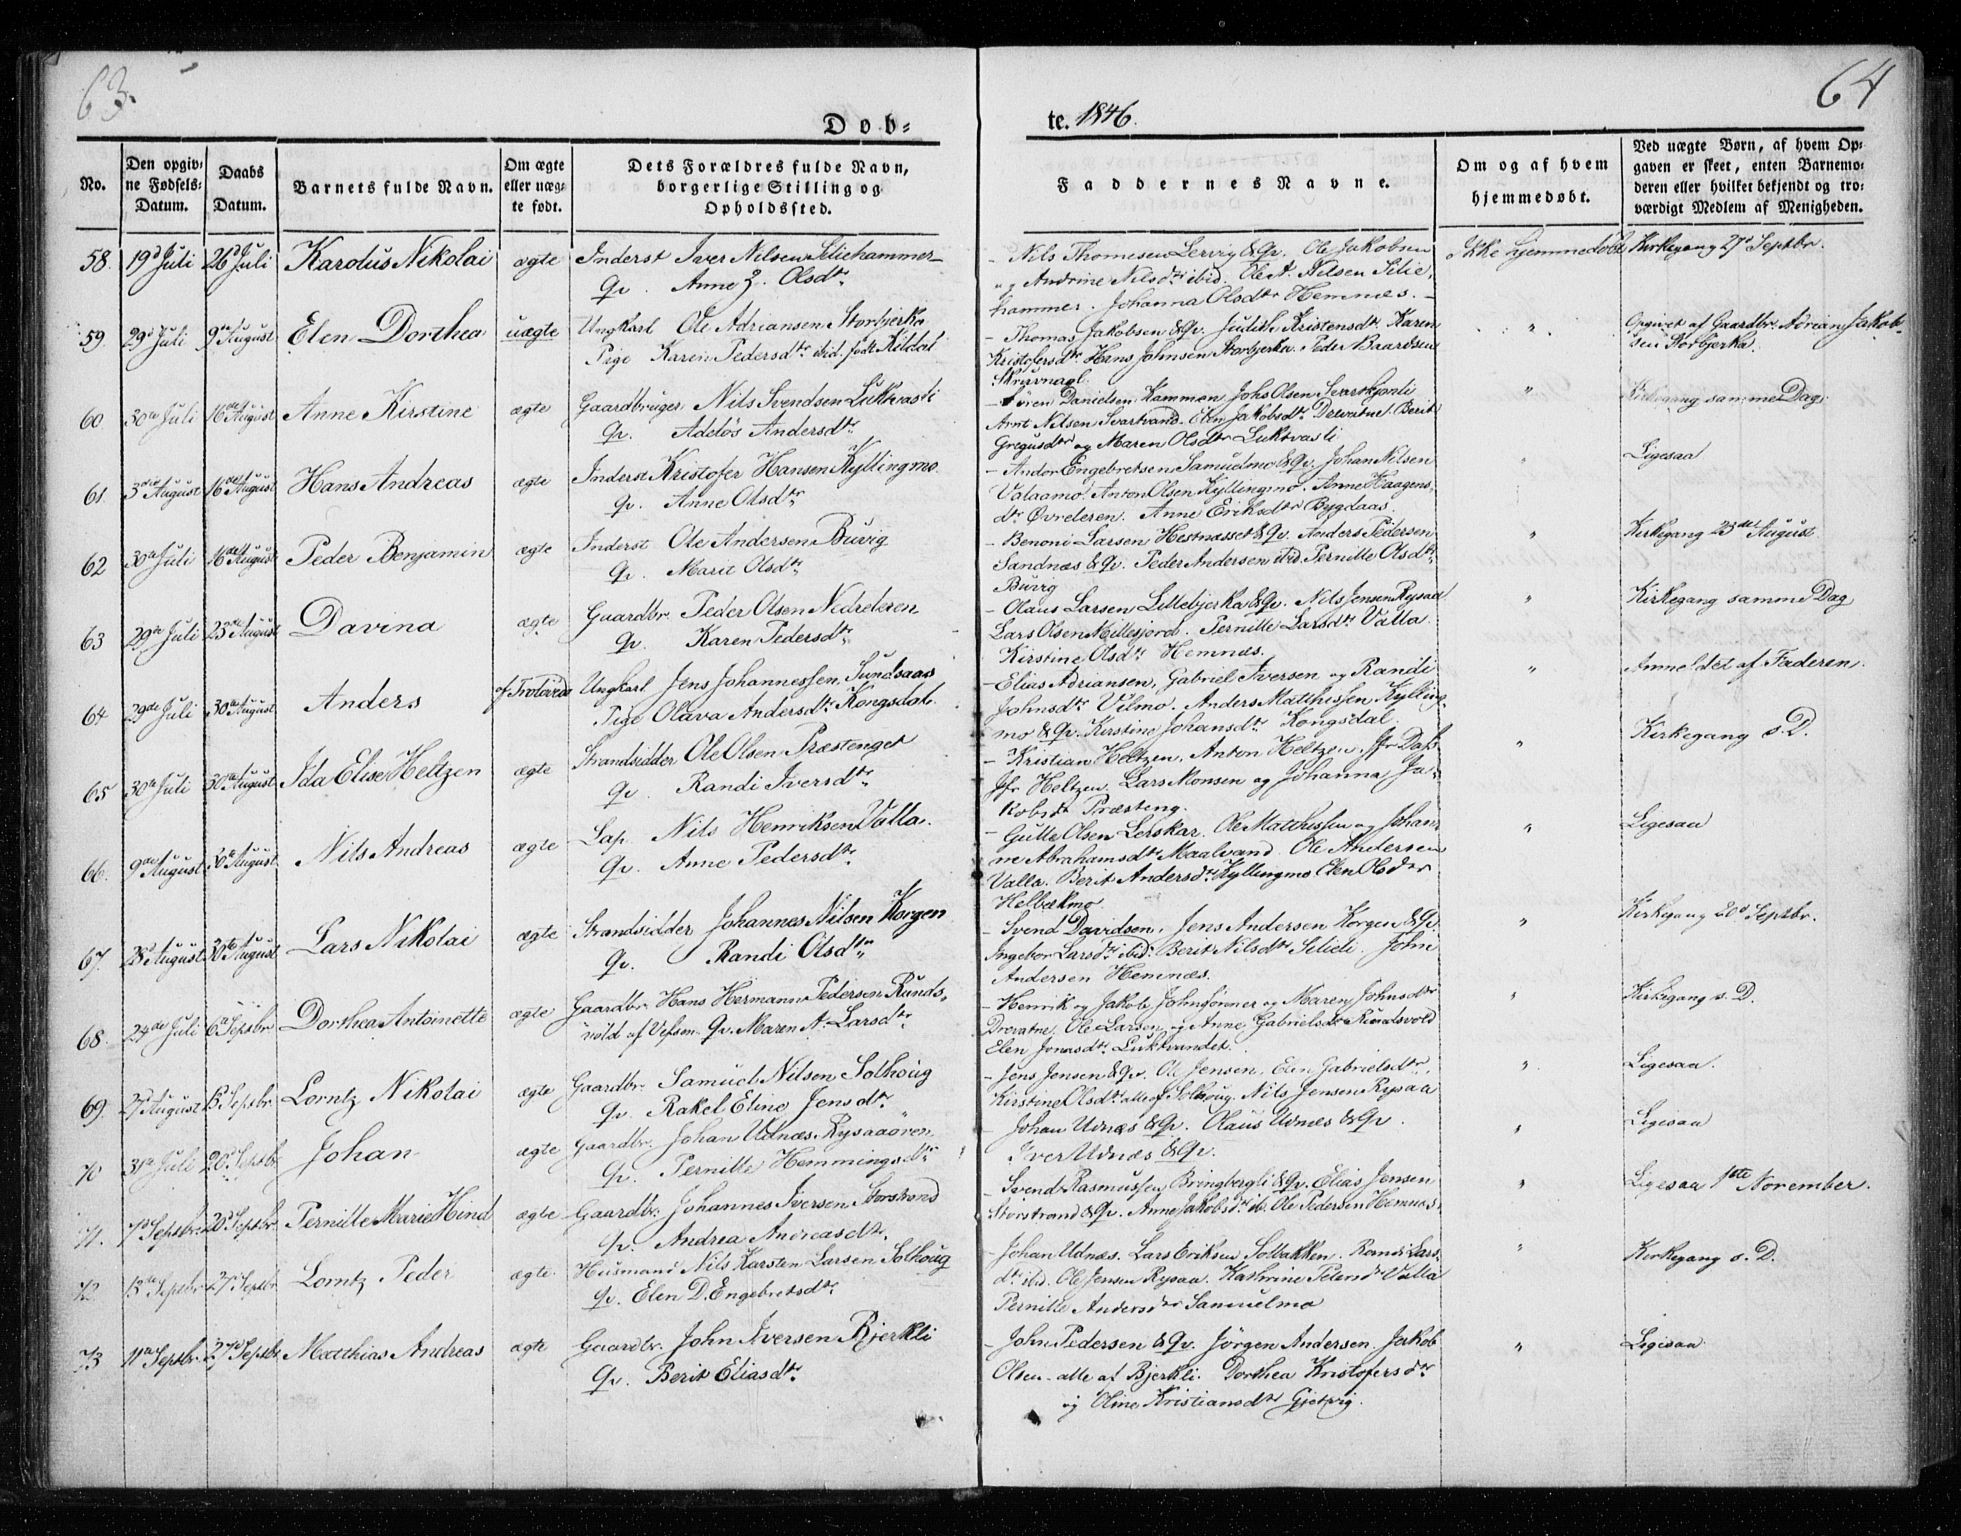 63.
64
Døb-
te. 1846.
No.
Den opgiv-
ne Fødsels-
Datum.
Daabs
Datum.
Barnets fulde Navn.
Om ægte
eller uæg-
te født.
Dets Forældres fulde Navn,
borgerlige Stilling og
Opholdssted.
Faddernes Navne.
Om og af hvem
hjemmedøbt.
Ved uægte Børn, af hvem Op-
gaven er skeet, enten Barnemo-
deren eller hvilket bekjendt og tro-
værdigt Medlem af Menigheden.
58. 19d Juli 26d Juli Karolus Nikolai ægte Inderst Iver Nilsen Siliehammer
Qv. Anne J. Olsdtr
- Nils Thomesen Lervig & Qv. Ole Jakobsen
og Andrine Nilsdtr ibid. Ole A. Nilsen Silie-
hammer. Johanna Olsdtr Hemnæs. -
Ikke hjemmedøbt Kirkegang 27d Septbr.
59 29d Juli 9de August Elen Dorthea uægte Ungkarl Ole Adriansen Storbjerka
Pige Karen Pedersdtr ibid. født Kildal
- Thomas Jakobsen & Qv. Judith Kristensdtr Karen
Kristofersdtr Hans Johnsen Storbjerka. Peder Baardsen
Skravnagl.
" Opgivet af Gaardbr. Adrian Jakob-
sen Storbjerka.
60 30te Juli 16de August Anne Kirstine ægte Gaardbruger Nils Svendsen Luktvasli
Qv. Adeløs Andersdtr
- Søren Danielsen Kammen Johs Olsen
Arnt Nilsen Svartvand. Elen Jakobsdtr Drevatne. Berit
Gregusdtr og Maren Olsdtr Luktvasli
" Kirkegang samme Dag.
61. 3die August 16de August Hans Andreas ægte Inderst Kristofer Hansen Kyllingmo
Qv. Anne Olsdtr
- Andor Engebretsen Samuelmo & Qv. Johan Nilsen
Valaamo. Anton Olsen Kyllingmo. Anne Haagens-
dtr Øvreleren. Anne Eriksdtr Bygdaas.
" Ligesaa
62 30te Juli 16de August Peder Benjamin ægte Inderst Ole Andersen Buvig
Qv. Marit Olsdtr
- Benoni Larsen Hestnæsset & Qv. Anders Pedersen
Sandnæs & Qv. Peder Andersen ibid. Pernille Olsdtr
Buvig
" Kirkegang 23de August
63 29de Juli 23de August Davina ægte Gaardbr. Peder Olsen Nedreleren
Qv. Karen Pedersdtr
- Olaus Larsen Lillebjerka & Qv. Nils Jensen Rysaa
Lars Olsen Millesjord. Pernille Larsdtr Valla.
Kirstine Olsdtr Hemnæs.
" Kirkegang samme Dag
64 29de Juli 30te August Anders af Trolovede Ungkarl Jens Johannessen Sundsaas
Pige Olava Andersdtr Kongsdal.
- Elias Adriansen, Gabriel Iversen og Randi
Johnsdtr Vilmo. Anders Matthissen Kylling-
mo & Qv. Kirstine Johansdtr Kongsdal.
" Anmeldet af Faderen.
65 30te Juli 30te August Ida Elise Heltzen ægte Strandsidder Ole Olsen Præstenget
Qv. Randi Iversdtr
- Kristian Heltzen. Anton Heltzen. Jfr Dass
Jfr Heltzen. Lars Monsen og Johanna Ja-
kobsdtr Præsteng.
" Kirkegang s. D.
66. 9de August 30te August Nils Andreas ægte Lap. Nils Henriksen Valla.
Qv. Anne Pedersdtr
- Gulle Olsen Lerskar. Ole Matthissen og Johan-
ne Abrahamsdtr Maalvand. Ole Andersen
Valla. Berit Andersdtr Kyllingmo Elen Olsdtr
Helbækmo
" Ligesaa
67. 28d August 30te August Lars Nikolai ægte Strandsidder Johannes Nilsen Korgen
Qv. Randi Olsdtr
- Svend Davidsen. Jens Andersen Korgen & Qv.
Ingebor Larsdtr ibid. Berit Nilsdtr Selieli. John
Andersen Hemnæs.
" Kirkegang 20d Septbr.
68. 24de Juli 6te Septbr. Dorthea Antoinette ægte Gaardbr. Hans Hermann Pedersen Runds-
vold af Vefsen. Qv. Maren A. Larsdtr
- Henrik og Jakob Johnsønner og Maren Johnsdtr
Drevatne. Ole Larsen og Anne Gabrielsdtr Rundsvold
Elen Jonasdtr Luktvandet.
" Kirkegang s. D.
69. 27d August 13 Septbr. Lorntz Nikolai ægte Gaardbr. Samuel Nilsen Solhoug
Qv. Rakel Eline Jensdtr
- Jens Jensen & Qv. Ole Jensen. Elen Gabrielsdtr.
Kirstine Olsdtr alle af Solhoug. Nils Jensen Rysaa
" Ligesaa.
70 31te Juli 20d Septbr. Johan ægte Gaardbr. Johan Udnæs. Rysaaøren
Qv. Pernille Hemmingsdtr
- Johan Udnæs & Qv. Olaus Udnæs & Qv.
Iver Udnæs & Qv.
" Ligesaa
71. 7d Septbr. 20d Septbr. Pernille Marie Hind ægte Gaardbr. Johannes Iversen Storstrand
Qv. Andrea Andreasdtr.
- Svend Rasmussen Bringbergli & Qv. Elias Jensen
Storstrand & Qv. Anne Jakobsdtr ib. Ole Pedersen Hemnæs.
" Ligesaa 1ste November.
72. 13de Septbr. 27d Septbr. Lorntz Peder ægte Husmand Nils Karsten Larsen Solhoug
Qv. Elen D. Engebretsdtr
- Johan Udnæs. Lars Eriksen Solbakken. Randi Lars-
dtr ibid. Ole Jensen Rysaa. Kathrine Valla
Pernille Andersdtr Samuelmo
" Kirkegang s. D.
73 11te Septbr. 27d Septbr. Matthias Andreas ægte Gaardbr. John Iversen Bjerkli
Qv. Berit Eliasdtr
- John Pedersen & Qv. Jørgen Andersen. Jakob
Olsen - alle af Bjerkli. Dorthea Kristofersdtr
og Oline Kristiansdtr Gjetvig.
" Ligesaa